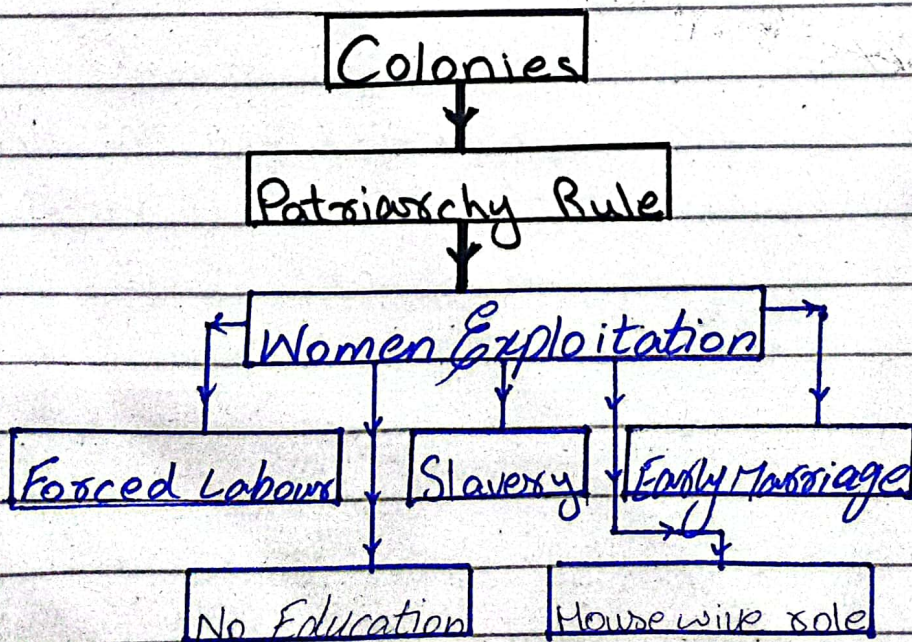 Colonies
Patriarchy Rule
Women Exploitation
Forced Labour Slavery Early Marriage
No Education Housewive role